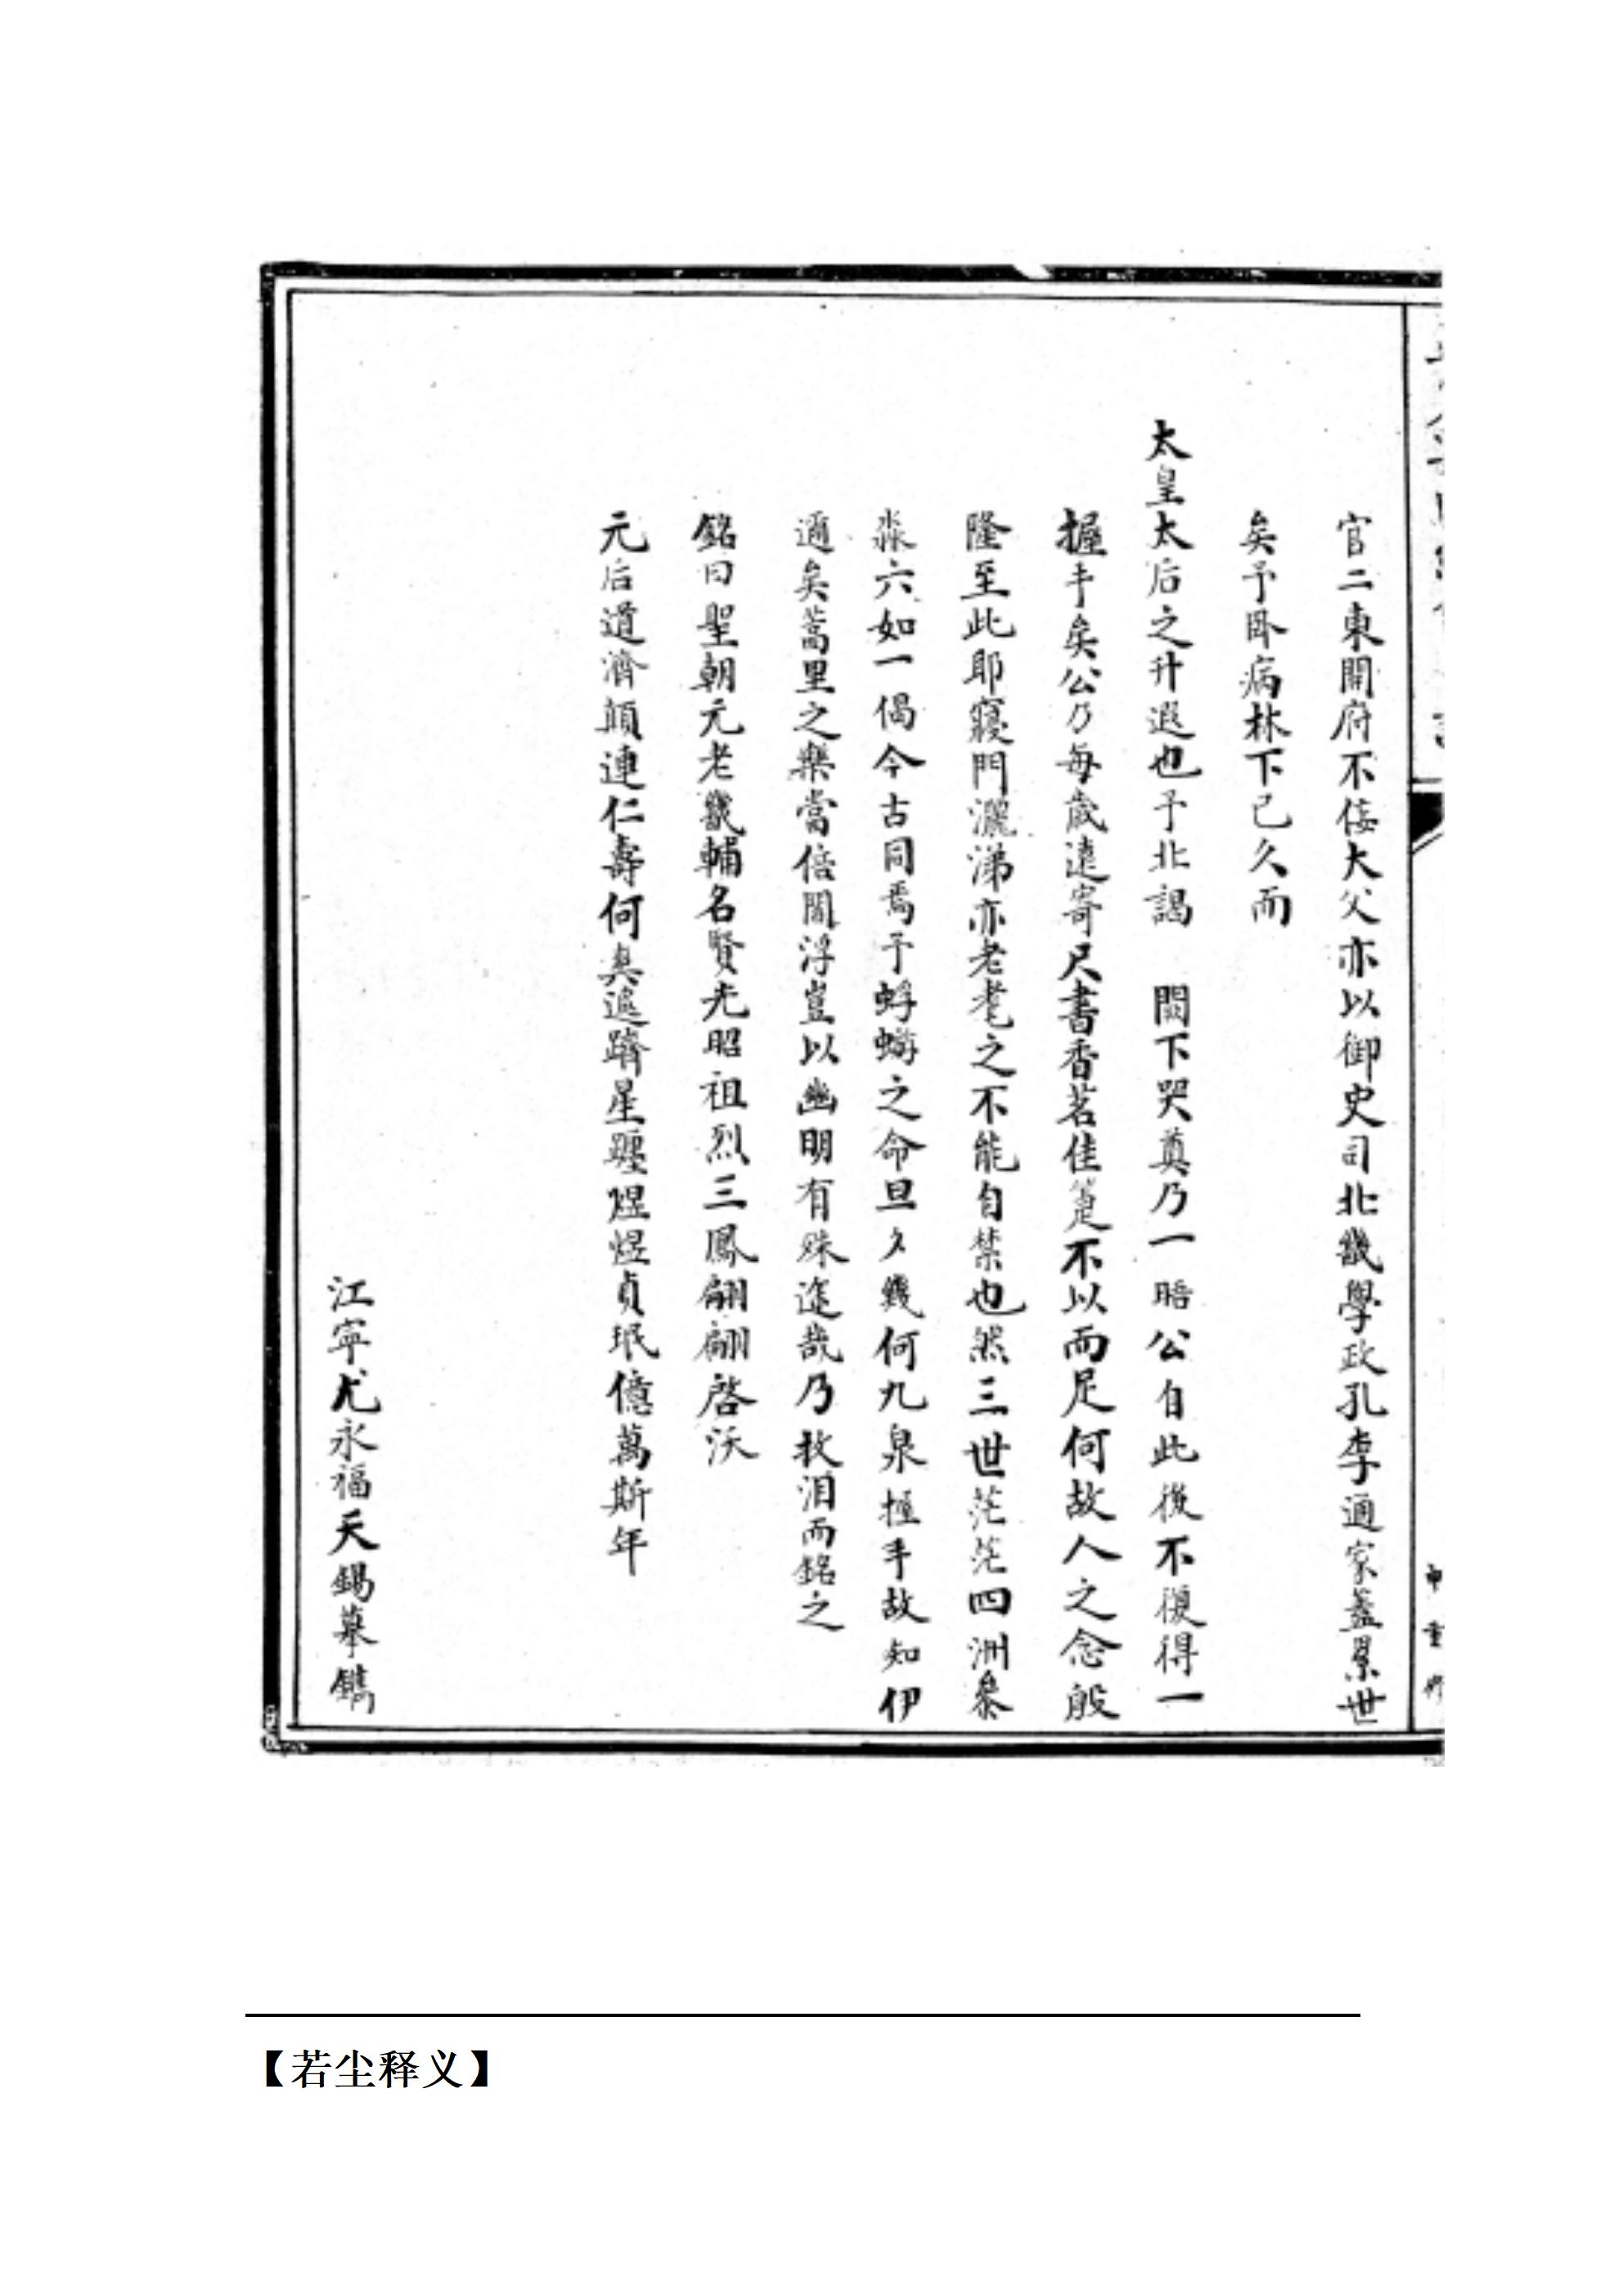 官二東開府不佞大父亦以御史司北畿學政孔李通家蓋累世
矣予臥病林下已久而
太皇太后之升遐也予北謁　闕下哭奠乃一晤公自此後不復得一
握手矣公乃每歲遠寄尺書香茗佳箑不以而足何故人之念殷
隆至此耶寢門灑涕亦老耄之不能自禁也然三世茫茫四洲叅
淼六如一偈今古同焉予蜉蝣之命旦夕幾何九泉握手故知伊
邇矣蒿里之樂當倍閻浮豈以幽明有殊途哉乃抆淚而銘之
銘曰聖朝元老畿輔名賢光昭祖烈三鳳翩翩啓沃
元后道濟顛連仁壽何奠遽躋星躔煜煜貞珉億萬斯年
江寧尤永福天錫摹鐫
【若尘释义】